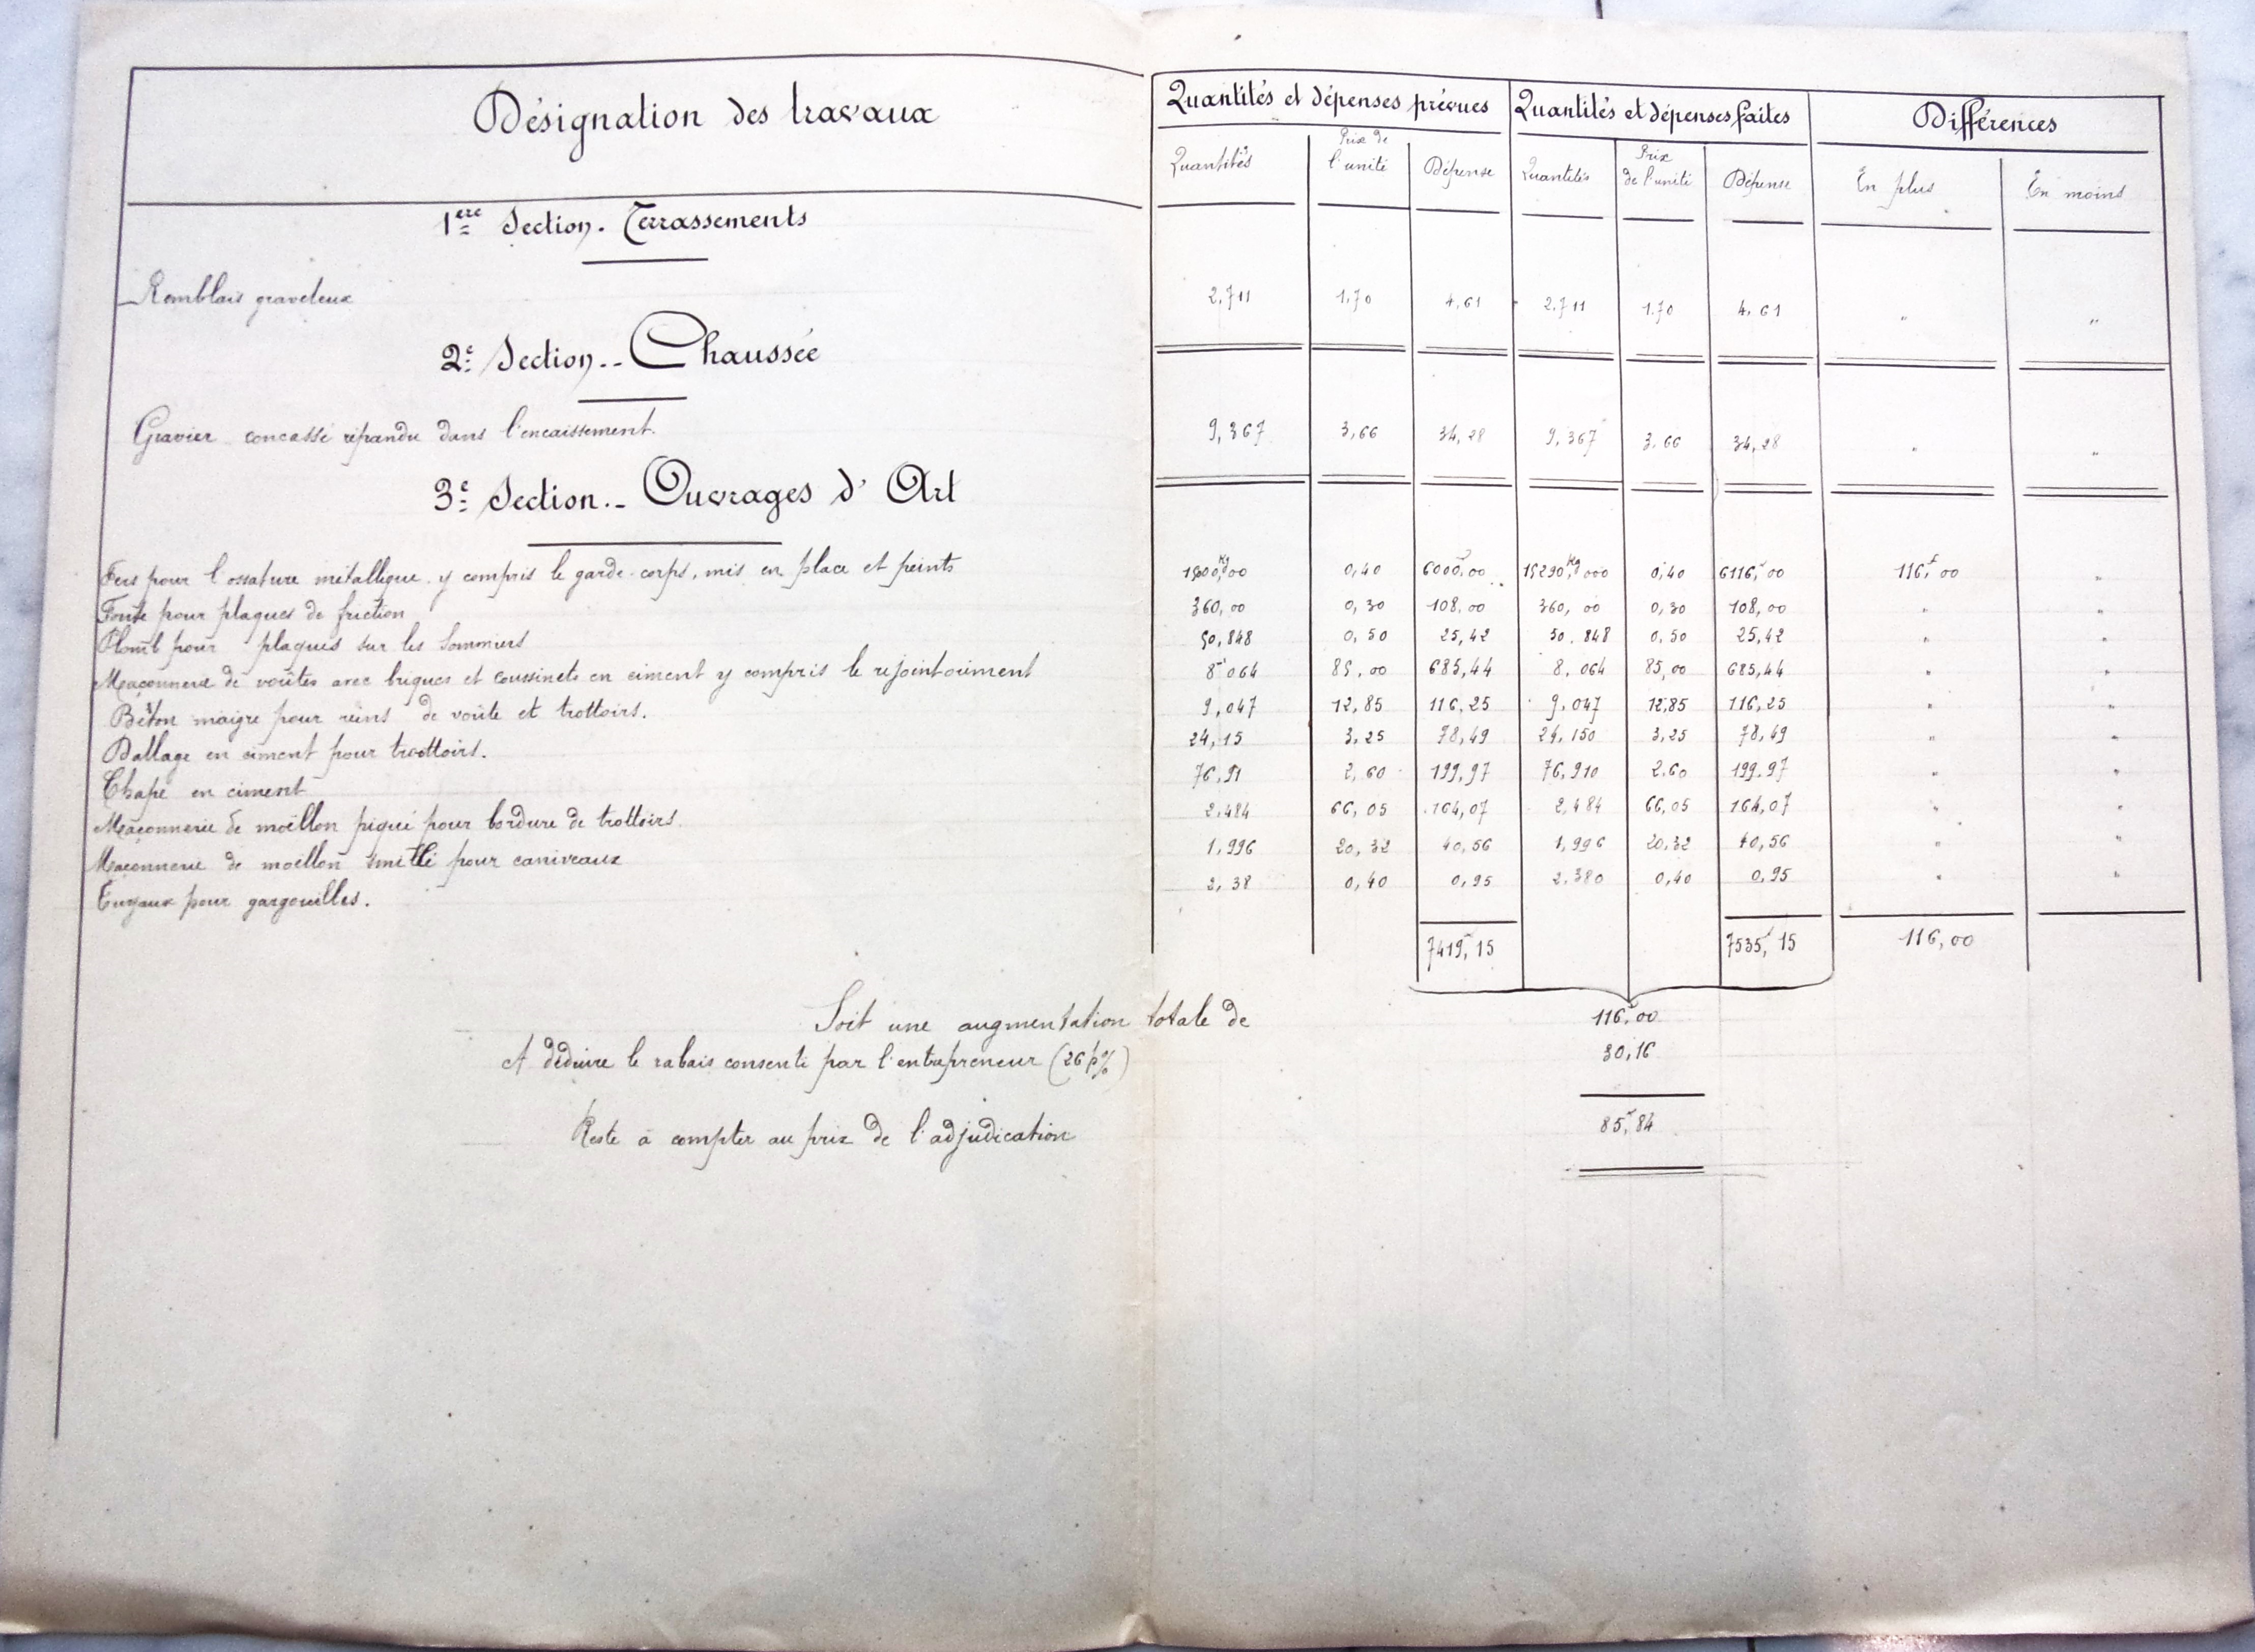 Désignation des travaux
Quantités et dépenses prévues Quantités et dépenses faites Différences
Quantités Prix de l'unité Dépense Quantités Prix de l'unité Dépense En plus En moins
1ère Section. Terrassements
Remblais graveleux 2,711 1,70 4,61 2,711 1.70 4,61 " "
2e Section.- Chaussée
Gravier concassé répandu dans l'encaissement. 9,367 3,66 34,28 9,367 3,66 34,28 " "
3e Section.- Ouvrages d'Art
Fers pour l'ossature métallique y compris le garde-corps, mis en place et peints 15000,Kg00 0,40 6000,00 15290,Kg000 0,40 6116,00 116,f00 "
Fonte pour plaques de friction 360,00 0,30 108,00 360,00 0,30 108,00 " "
Plomb pour plaques sur les sommiers 50,848 0,50 25,42 50.848 0,50 25,42 " "
Maçonnerie de voûtes avec briques et coussinets en ciment y compris le rejointoiement 8,064 85,00 685,44 8,064 85,00 685,44 " "
Béton maigre pour reins de voûte et trottoirs. 9,047 12,85 116,25 9,047 12,85 116,25 " "
Dallage en ciment pour trottoirs. 24,15 3,25 78,49 24,150 3,25 78,49 " "
Chape en ciment 76,91 2,60 199,97 76,910 2,60 199.97 " "
Maçonnerie de moëllon piqué pour bordure de trottoirs. 2,484 66,05 164,07 2,484 66,05 164,07 " "
Maçonnerie de moëllon smillé pour caniveaux 1,996 20,32 40,56 1,996 20,32 40,56 " "
Tuyaux pour gargouilles. 2,38 0,40 0,95 2,380 0,40 0,95 " "
7419,15 7535,15 116,00
Soit une augmentation totale de 116,00
A déduire le rabais consenti par l'entrepreneur (26 p%) 30,16
Reste à compter au prix de l'adjudication 85,84